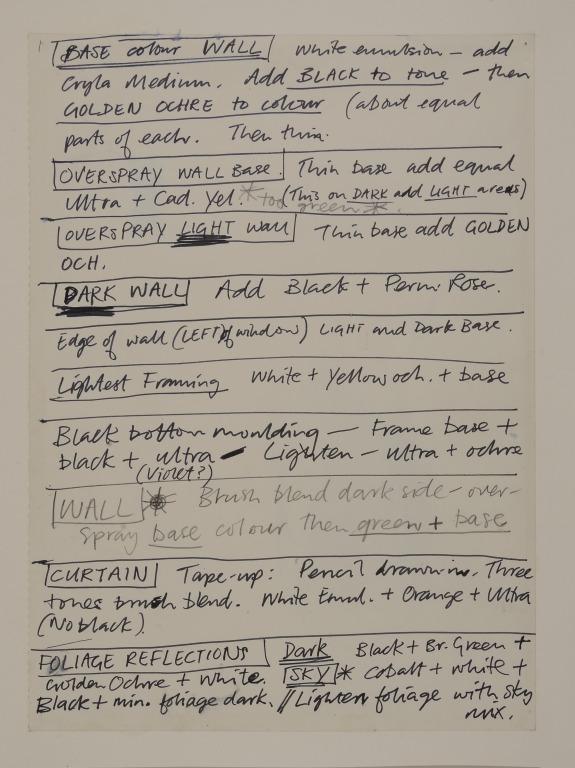 BASE colour WALL White emulsion – add
Cryla Medium. Add BLACK to tone – then
GOLDEN OCHRE to colour (about equal
parts of each. Then thin.
OVERSPRAY WALL Base. Thin base add equal
Ultra + Cad. Yel. * too green * (This on DARK add LIGHT areas)
OVERSPRAY LIGHT Wall Thin base add GOLDEN
OCH.
DARK WALL Add Black + Perm. Rose.
Edge of wall (LEFT of window) LIGHT and Dark Base.
Lightest Framing White + Yellow och. + base
Black bottom moulding – Frame base +
black + ultra – Lighten – ultra + ochre
(Violet?)
WALL * Brush blend dark side – over-
spray base colour then green + base
CURTAIN Tape-up: Pencil drawn in. Three
tones brush blend. White Emul. + Orange + Ultra
(No black).
FOLIAGE REFLECTIONS Dark Black + Br. Green +
Golden Ochre + White. SKY * Cobalt + white +
Black + min. foliage dark. // Lighten foliage with sky
mix.